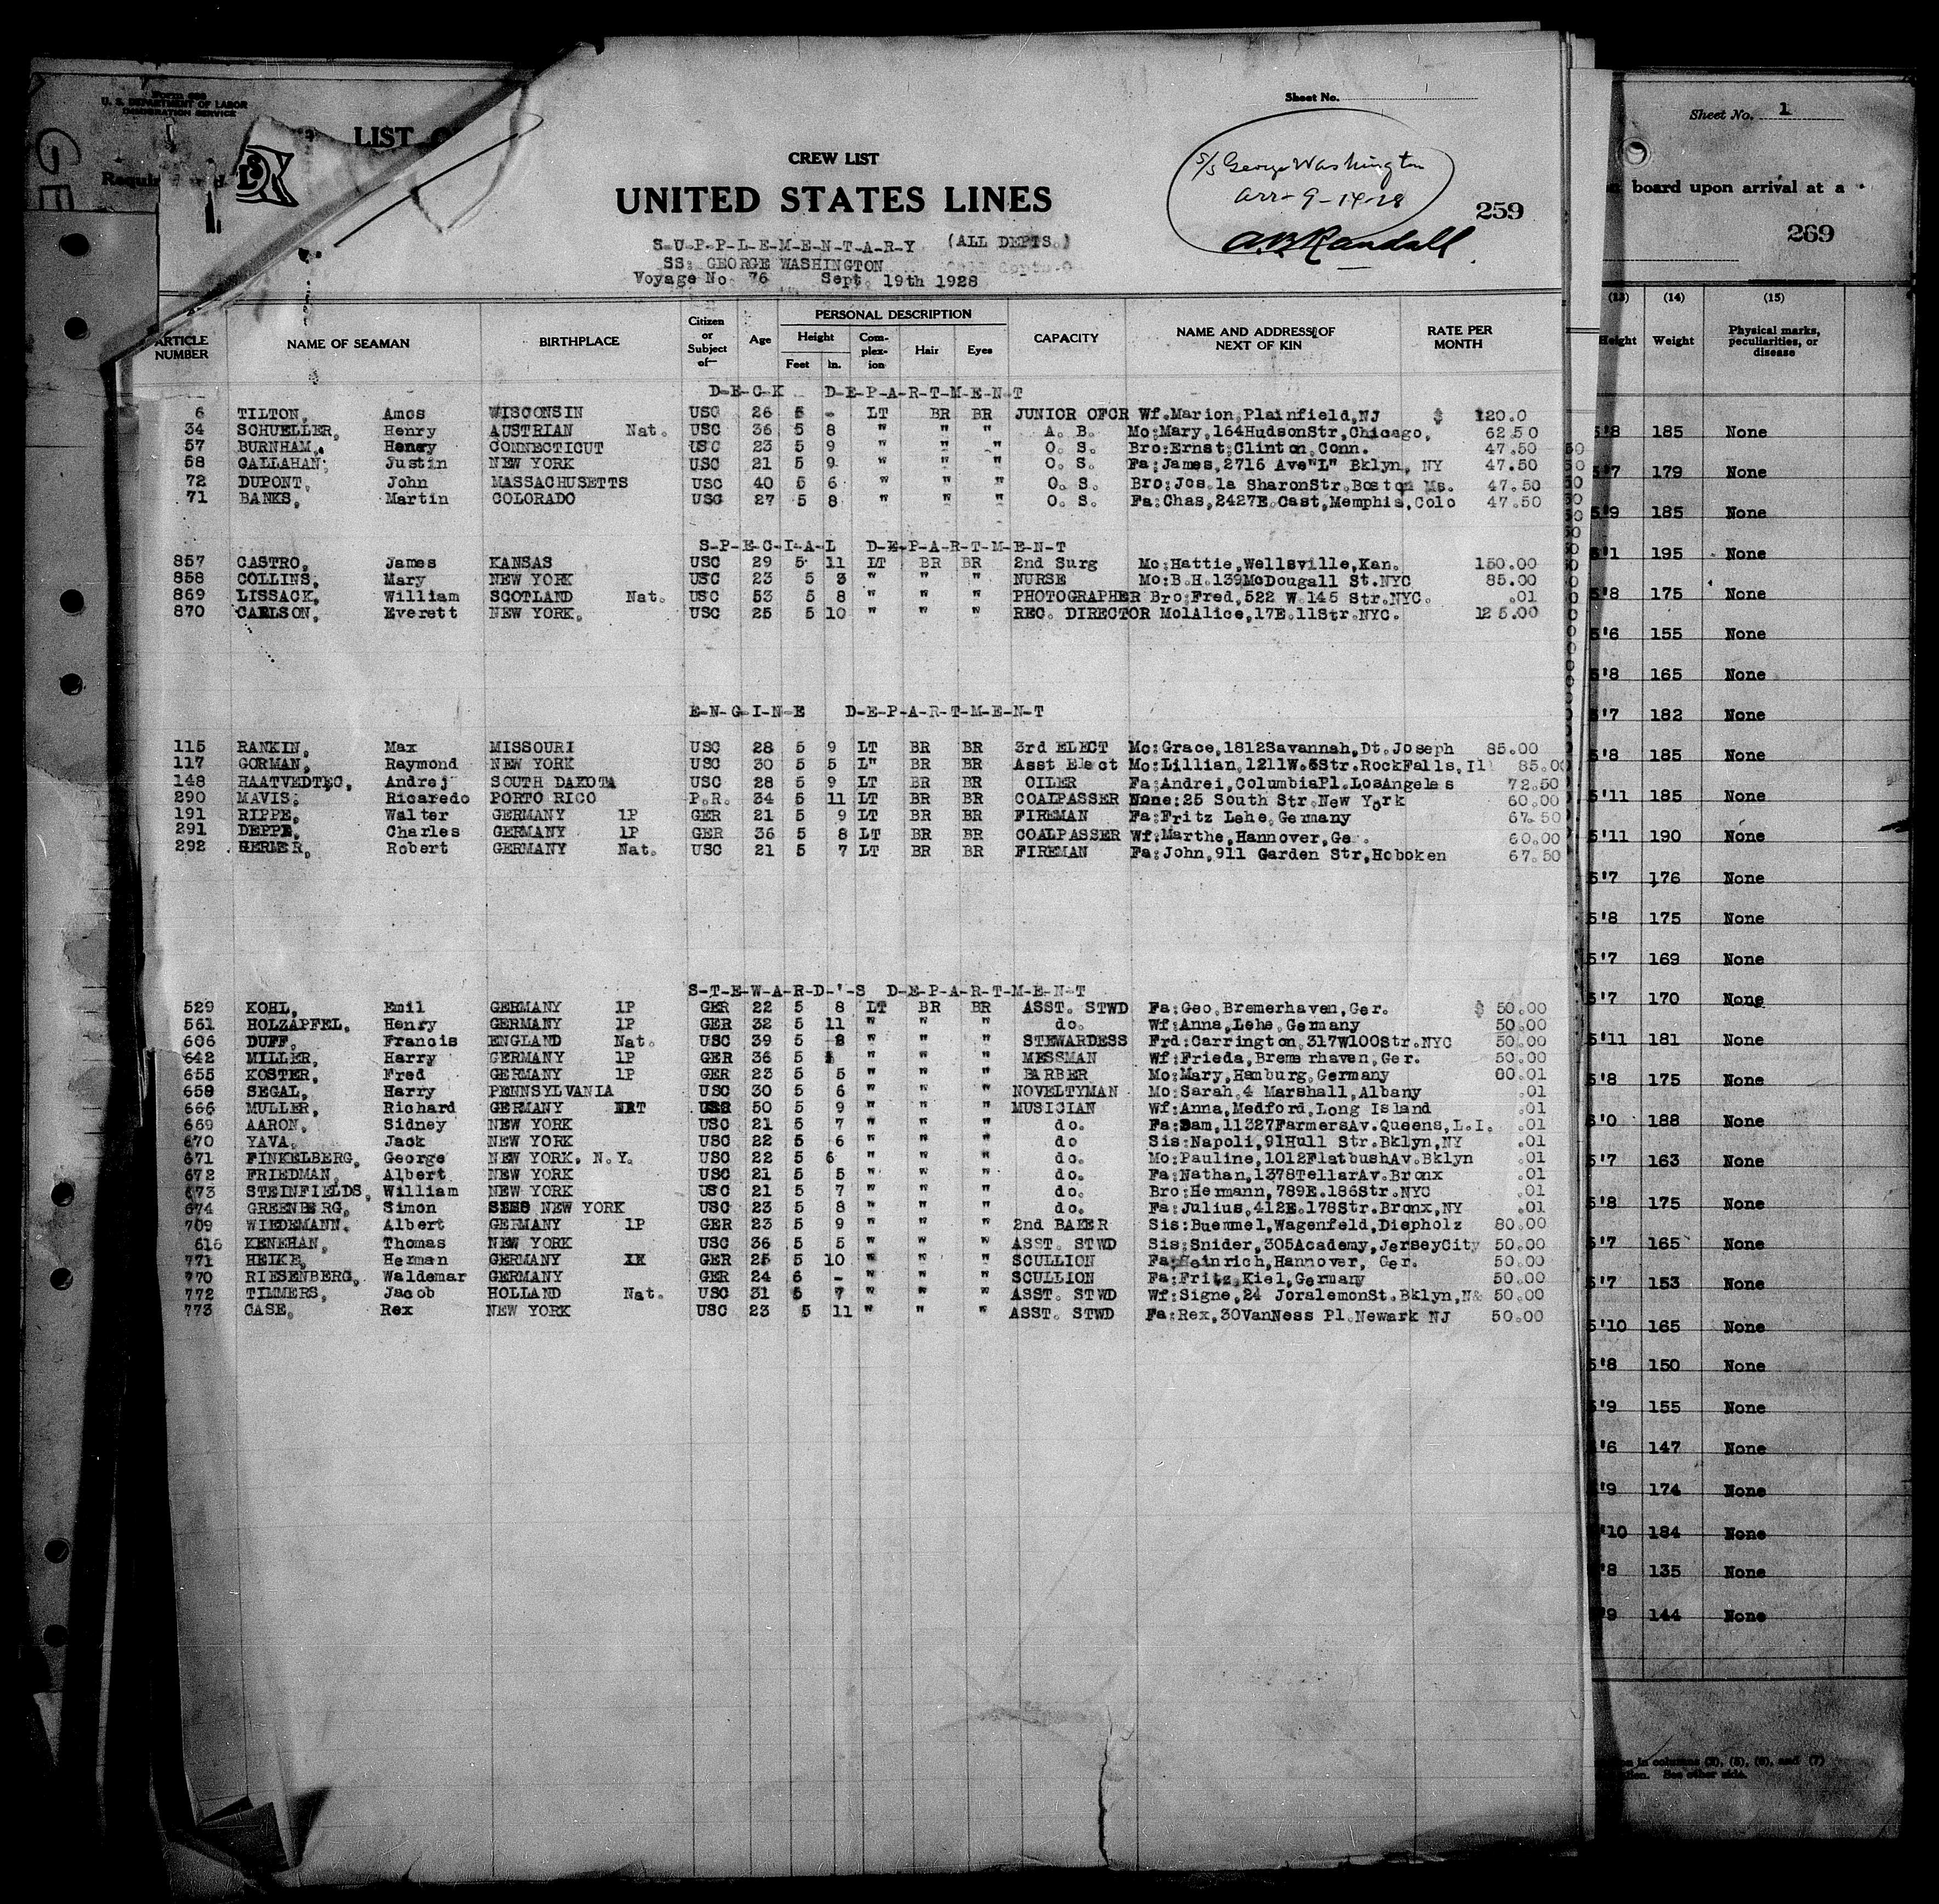 Form 689
U. S. DEPARTMENT OF LABOR
IMMIGRATION SERVICE
LIST O
Requi
GE
Sheet No.
CREW LIST
UNITED STATES LINES
S/S George Washington
arr- 9-14-28
A.B. Randall
259
S-U-P-P-L-E-M-E-N-T-A-R-Y (ALL DEPTS.)
SS: GEORGE WASHINGTON
Voyage No. 76 Sept. 19th 1928
ARTICLE NUMBER NAME OF SEAMAN BIRTHPLACE Citizen or Subject of— Age PERSONAL DESCRIPTION Height Feet In. Complexion Hair Eyes CAPACITY NAME AND ADDRESS OF NEXT OF KIN RATE PER MONTH
D-E-C-K D-E-P-A-R-T-M-E-N-T
6 TILTON, Amos WISCONSIN USC 26 5 - LT BR BR JUNIOR OFCR Wf.Marion,Plainfield,NJ $ 120.0
34 SCHUELLER, Henry AUSTRIAN Nat. USC 36 5 8 " " " A. B. Mo:Mary,164HudsonStr,Chicago, 62.50
57 BURNHAM, Henry CONNECTICUT USC 23 5 9 " " " O. S. Bro:Ernst:Clinton,Conn. 47.50
58 GALLAHAN, Justin NEW YORK USC 21 5 9 " " " O. S. Fa:James,2716 Ave"L" Bklyn, NY 47.50
72 DUPONT, John MASSACHUSETTS USC 40 5 6 " " " O. S. Bro:Jos.1a SharonStr.Boston Ms. 47.50
71 BANKS, Martin COLORADO USC 27 5 8 " " " O. S. Fa:Chas,2427E.Cast,Memphis,Colo 47.50
S-P-E-C-I-A-L D-E-P-A-R-T-M-E-N-T
857 CASTRO, James KANSAS USC 29 5 11 LT BR BR 2nd Surg Mo:Hattie,Wellsville,Kan. 150.00
858 COLLINS, Mary NEW YORK USC 23 5 3 " " " NURSE Mo:B.H.139McDougall St.NYC 85.00
869 LISSACK, William SCOTLAND Nat. USC 53 5 8 " " " PHOTOGRAPHER Bro:Fred,522 W.145 Str.NYC. .01
870 CARLSON, Everett NEW YORK, USC 25 5 10 " " " REC. DIRECTOR Mo1Alice,17E.11Str.NYC. 125.00
E-N-G-I-N-E D-E-P-A-R-T-M-E-N-T
115 RANKIN, Max MISSOURI USC 28 5 9 LT BR BR 3rd ELECT Mo:Grace,1812Savannah,Dt.Joseph 85.00
117 GORMAN, Raymond NEW YORK USC 30 5 5 L" BR BR Asst Elect Mo:Lillian,1211W.5Str.RockFalls,Il 85.00
148 HAATVEDTEC, Andrej SOUTH DAKOTA USC 28 5 9 LT BR BR OILER Fa:Andrei,ColumbiaPl.LosAngeles 72.50
290 MAVIS, Ricaredo PORTO RICO P.R. 34 5 11 LT BR BR COALPASSER None:25 South Str.New York 60.00
191 RIPPE, Walter GERMANY 1P GER 21 5 9 LT BR BR FIREMAN Fa:Fritz Lehe,Germany 67.50
291 DEPPE, Charles GERMANY 1P GER 36 5 8 LT BR BR COALPASSER Wf:Marthe,Hannover,Ge . 60.00
292 Robert GERMANY Nat. USC 21 5 7 LT BR BR FIREMAN Fa:John,911 Garden Str,Hoboken 67.50
S-T-E-W-A-R-D-'-S D-E-P-A-R-T-M-E-N-T
529 KOHL, Emil GERMANY 1P GER 22 5 8 LT BR BR ASST. STWD Fa:Geo.Bremerhaven,Ger. $ 50.00
561 HOLZAPFEL, Henry GERMANY 1P GER 32 5 11 " " " do. Wf:Anna,Lehe,Germany 50.00
606 DUFF, Francis ENGLAND Nat. USC 39 5 8 " " " STEWARDESS Frd:Carrington,317W100Str.NYC 50.00
642 MILLER, Harry GERMANY 1P GER 36 5 " " " MESSMAN Wf:Frieda,Bremerhaven,Ger. 50.00
655 KOSTER, Fred GERMANY 1P GER 23 5 5 " " " BARBER Mo:Mary,Hamburg,Germany 00.01
659 SEGAL, Harry PENNSYLVANIA USC 30 5 6 " " " NOVELTYMAN Mo:Sarah,4 Marshall,Albany .01
666 MULLER, Richard GERMANY NAT USC 50 5 9 " " " MUSICIAN Wf:Anna,Medford,Long Island .01
669 AARON, Sidney NEW YORK USC 21 5 7 " " " do. Fa:Sam,11327FarmersAv.Queens,L.I. .01
670 YAVA, Jack NEW YORK USC 22 5 6 " " " do Sis:Napoli,91Hull Str.Bklyn,NY .01
671 FINKELBERG, George NEW YORK, N.Y. USC 22 5 6 " " " do. Mo:Pauline,1012FlatbushAv.Bklyn .01
672 FRIEDMAN, Albert NEW YORK USC 21 5 5 " " " do. Fa:Nathan,1378TellarAv.Bronx .01
673 STEINFIELDS, William NEW YORK USC 21 5 7 " " " do. Bro:Hermann,789E.186Str.NYC .01
674 GREENBERG, Simon NEW YORK USC 23 5 8 " " " do. Fa:Julius,412E.178Str.Bronx,NY .01
709 WIEDEMANN, Albert GERMANY 1P GER 23 5 9 " " " 2nd BAKER Sis:Buemmel,Wagenfeld,Diepholz 80.00
616 KENEHAN, Thomas NEW YORK USC 36 5 5 " " " ASST. STWD Sis:Snider,305Academy,JerseyCity 50.00
771 HEIKE, Herman GERMANY GER 25 5 10 " " " SCULLION Fa:Heinrich,Hannover, Ger. 50.00
770 RIESENBERG, Waldemar GERMANY GER 24 6 - " " " SCULLION Fa:Fritz,Kiel,Germany 50.00
772 TIMMERS, Jacob HOLLAND Nat. USC 31 5 7 " " " ASST. STWD Wf:Signe,24 JoralemonSt.Bklyn,N& 50.00
773 CASE, Rex NEW YORK USC 23 5 11 " " " ASST. STWD Fa:Rex,30VanNess Pl.Newark NJ 50.00
Sheet No. 1
board upon arrival at a
269
(13) (14) (15)
Height Weight Physical marks, peculiarities, or disease
5'8 185 None
5'7 179 None
5'9 185 None
5'1 195 None
5'8 175 None
5'6 155 None
5'8 165 None
5'7 182 None
5'8 185 None
5'11 185 None
5'11 190 None
5'7 176 None
5'8 175 None
5'7 169 None
5'7 170 None
5'11 181 None
5'8 175 None
5'0 188 None
5'7 163 None
5'8 175 None
5'7 165 None
5'7 153 None
5'10 165 None
5'8 150 None
5'9 155 None
5'6 147 None
'9 174 None
'10 184 None
'8 135 None
'9 144 None
in columns (2), (5), (6), and (7)
See other side.